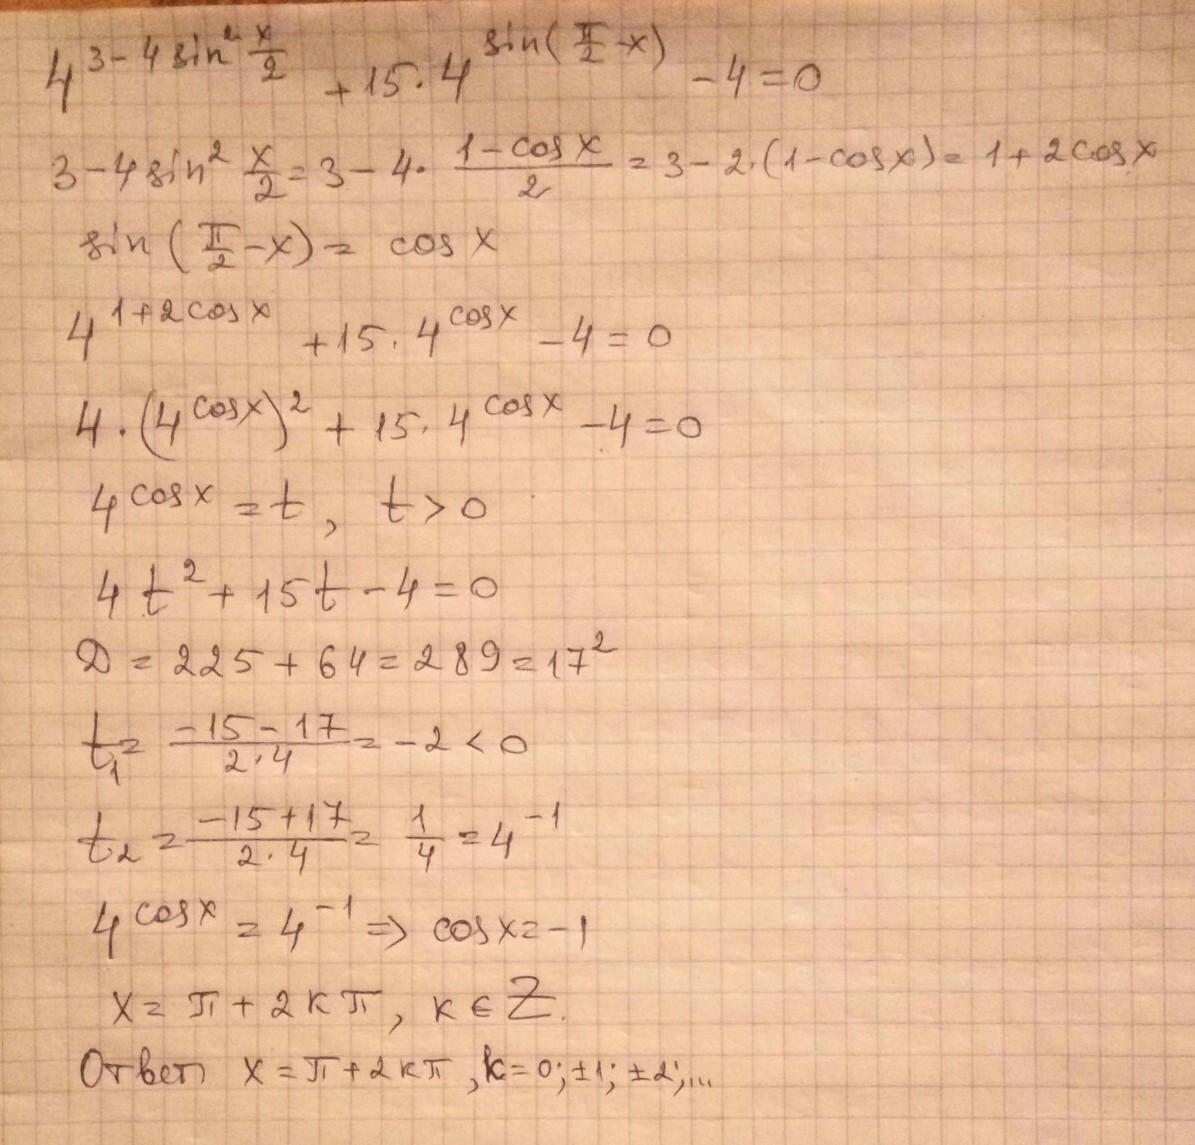 4^(3-4sin² x/2) + 15·4^(sin(π/2 - x)) - 4 = 0
3-4sin² x/2 = 3-4· (1-cosx)/2 = 3-2·(1-cosx) = 1+2cosx
sin(π/2 - x) = cosx
4^(1+2cosx) + 15·4^(cosx) - 4 = 0
4·(4^(cosx))² + 15·4^(cosx) - 4 = 0
4^(cosx) = t, t > 0
4t² + 15t - 4 = 0
D = 225 + 64 = 289 = 17²
t₁ = (-15-17)/(2·4) = -2 < 0
t₂ = (-15+17)/(2·4) = 1/4 = 4⁻¹
4^(cosx) = 4⁻¹ => cosx = -1
x = π + 2кπ, к ∈ Z.
Ответ x = π + 2кπ, k = 0; ±1; ±2;...